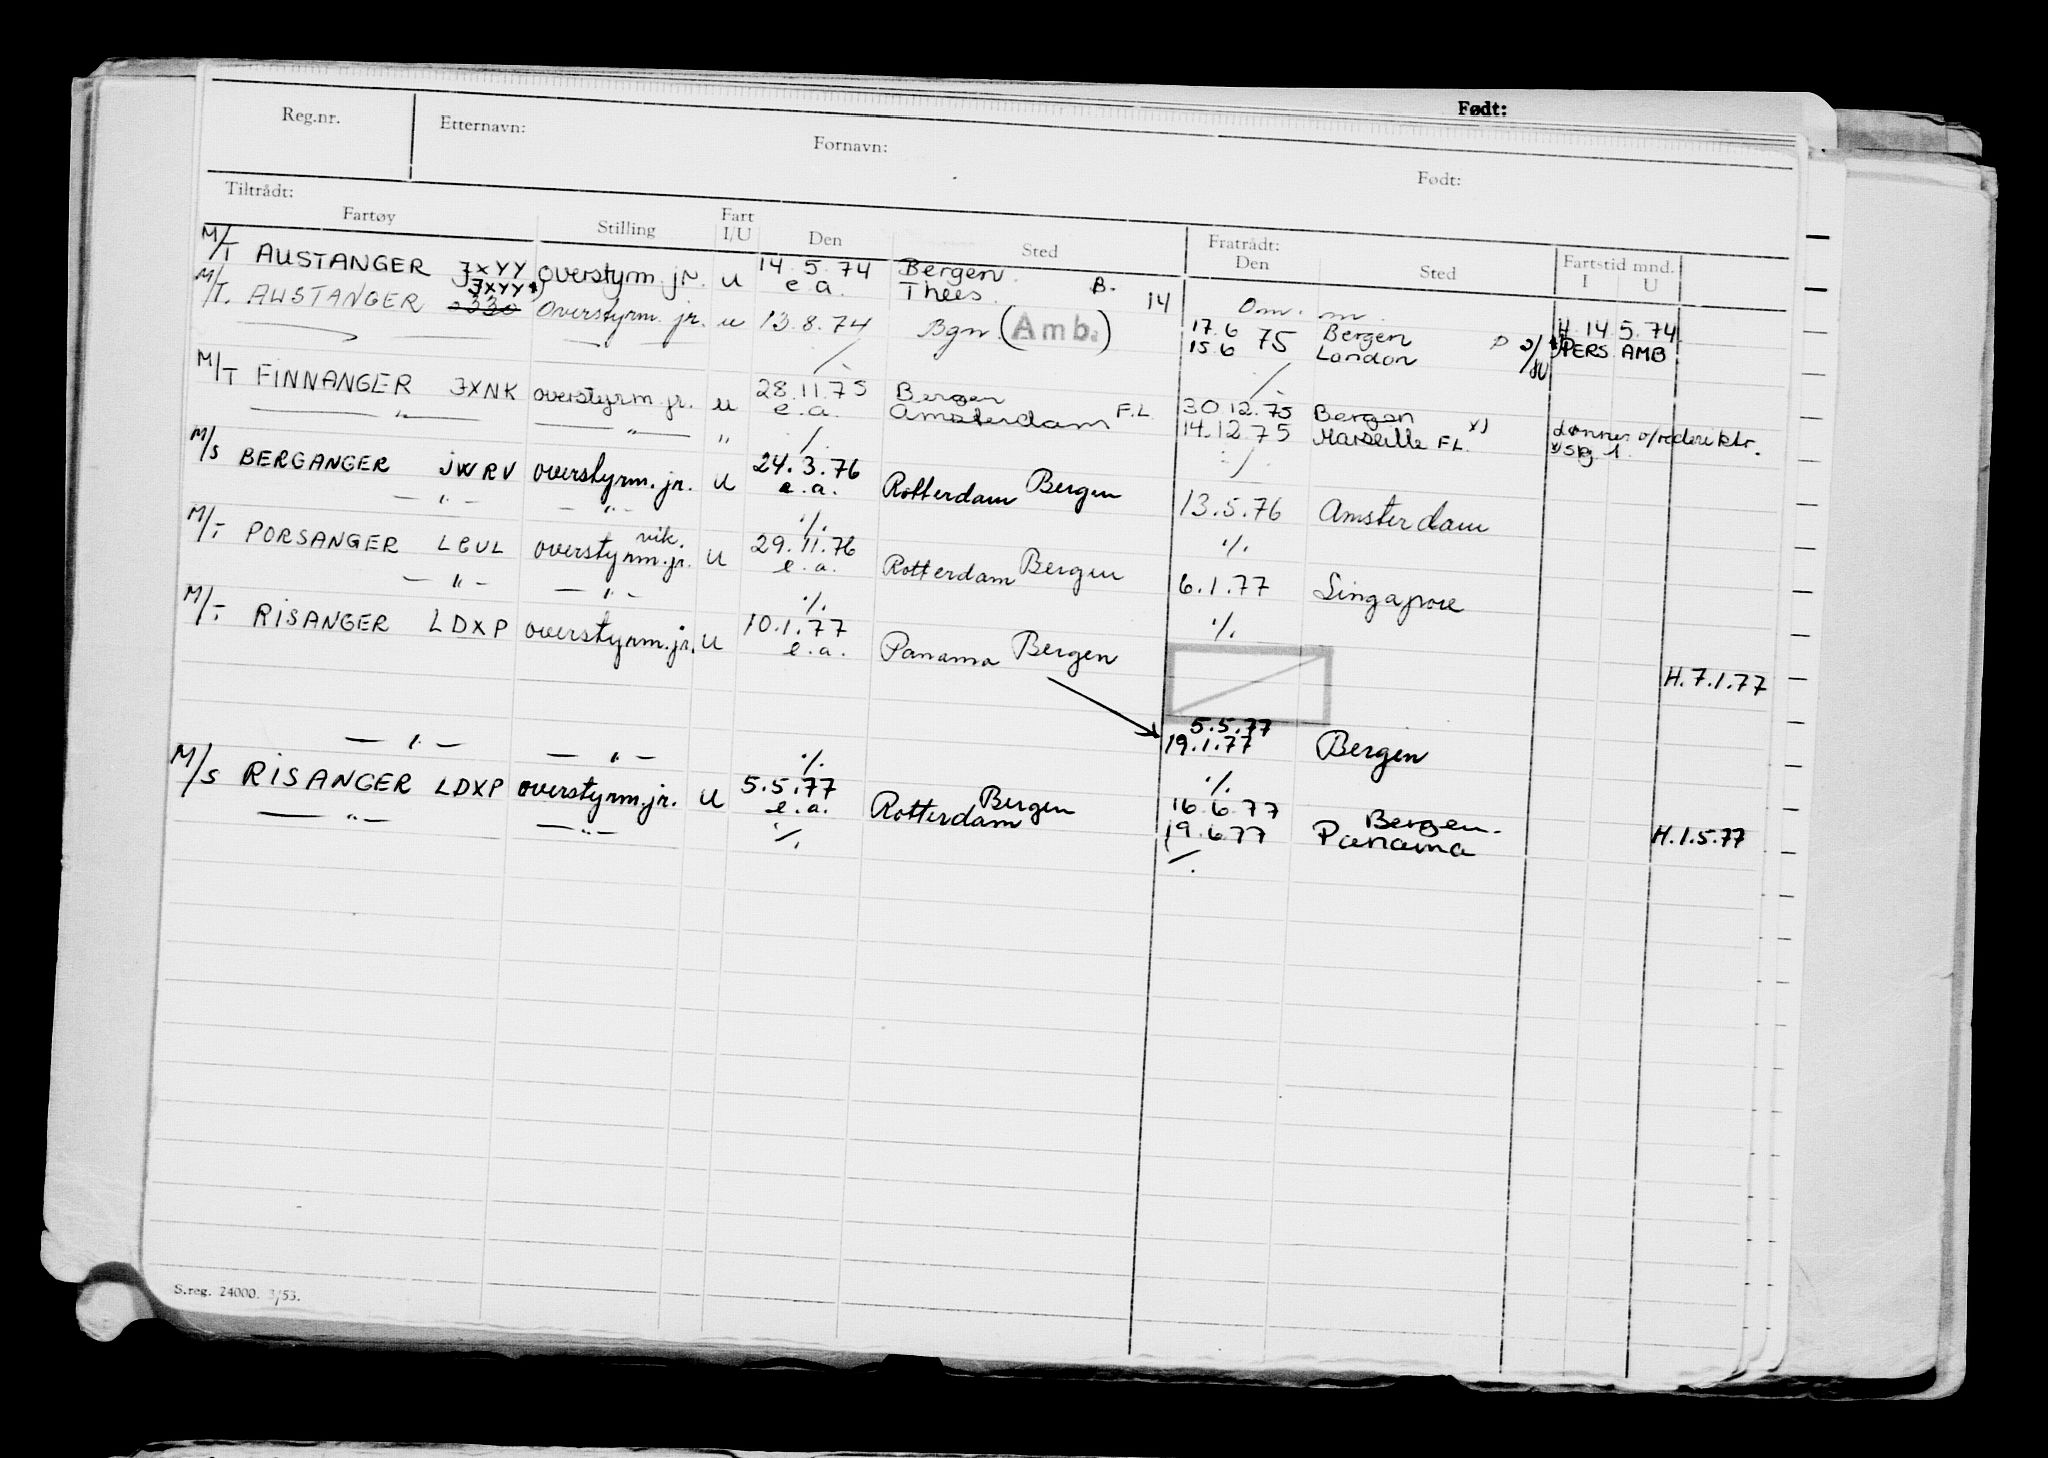 Født:
Reg.nr. Etternavn: Fornavn: Født:
Tiltrådt: Fratrådt:
Fartøy Stilling Fart I/U Den Sted Den Sted Fartstid mnd. I U
M/T AUSTANGER JXYY overstyrm. jr. u 14.5.74 Bergen.
JXYY e.a. Thees. B. 14 Om. m.
M/T. AUSTANGER 2330 Overstyrm. jr. u 13.8.74 Bgn. (Amb.) 17.6 75 Bergen H. 14 5.74
./. 15.6 London PERS. AMB.
M/T FINNANGER JXNK overstyrm. jr. u 28.11.75 Bergen ./.
— " — — " — " e.a. Amsterdam F.L. 30.12.75 Bergen x)
./. 14.12.75 Marseille F.L.
M/S BERGANGER JWRV overstyrm. jr. u 24.3.76 Bergen ./.
— " — — " — e.a. Rotterdam 13.5.76 Amsterdam
vik. ./.
M/T PORSANGER LCUL overstyrm. jr. u 29.11.76 Bergen ./.
— " — — " — e.a. Rotterdam 6.1.77 Singapore
./.
M/T RISANGER LDXP overstyrm. jr. u 10.1.77 Bergen ./.
e.a. Panama
H. 7.1.77
5.5.77
— " — — " — ./. 19.1.77 Bergen
M/S RISANGER LDXP overstyrm. jr. u 5.5.77 Bergen ./.
— " — — " — e.a. Rotterdam 16.6.77 Bergen.
./. 19.6.77 Panama H. 1.5.77
./.
S.reg. 24000. 3/53.